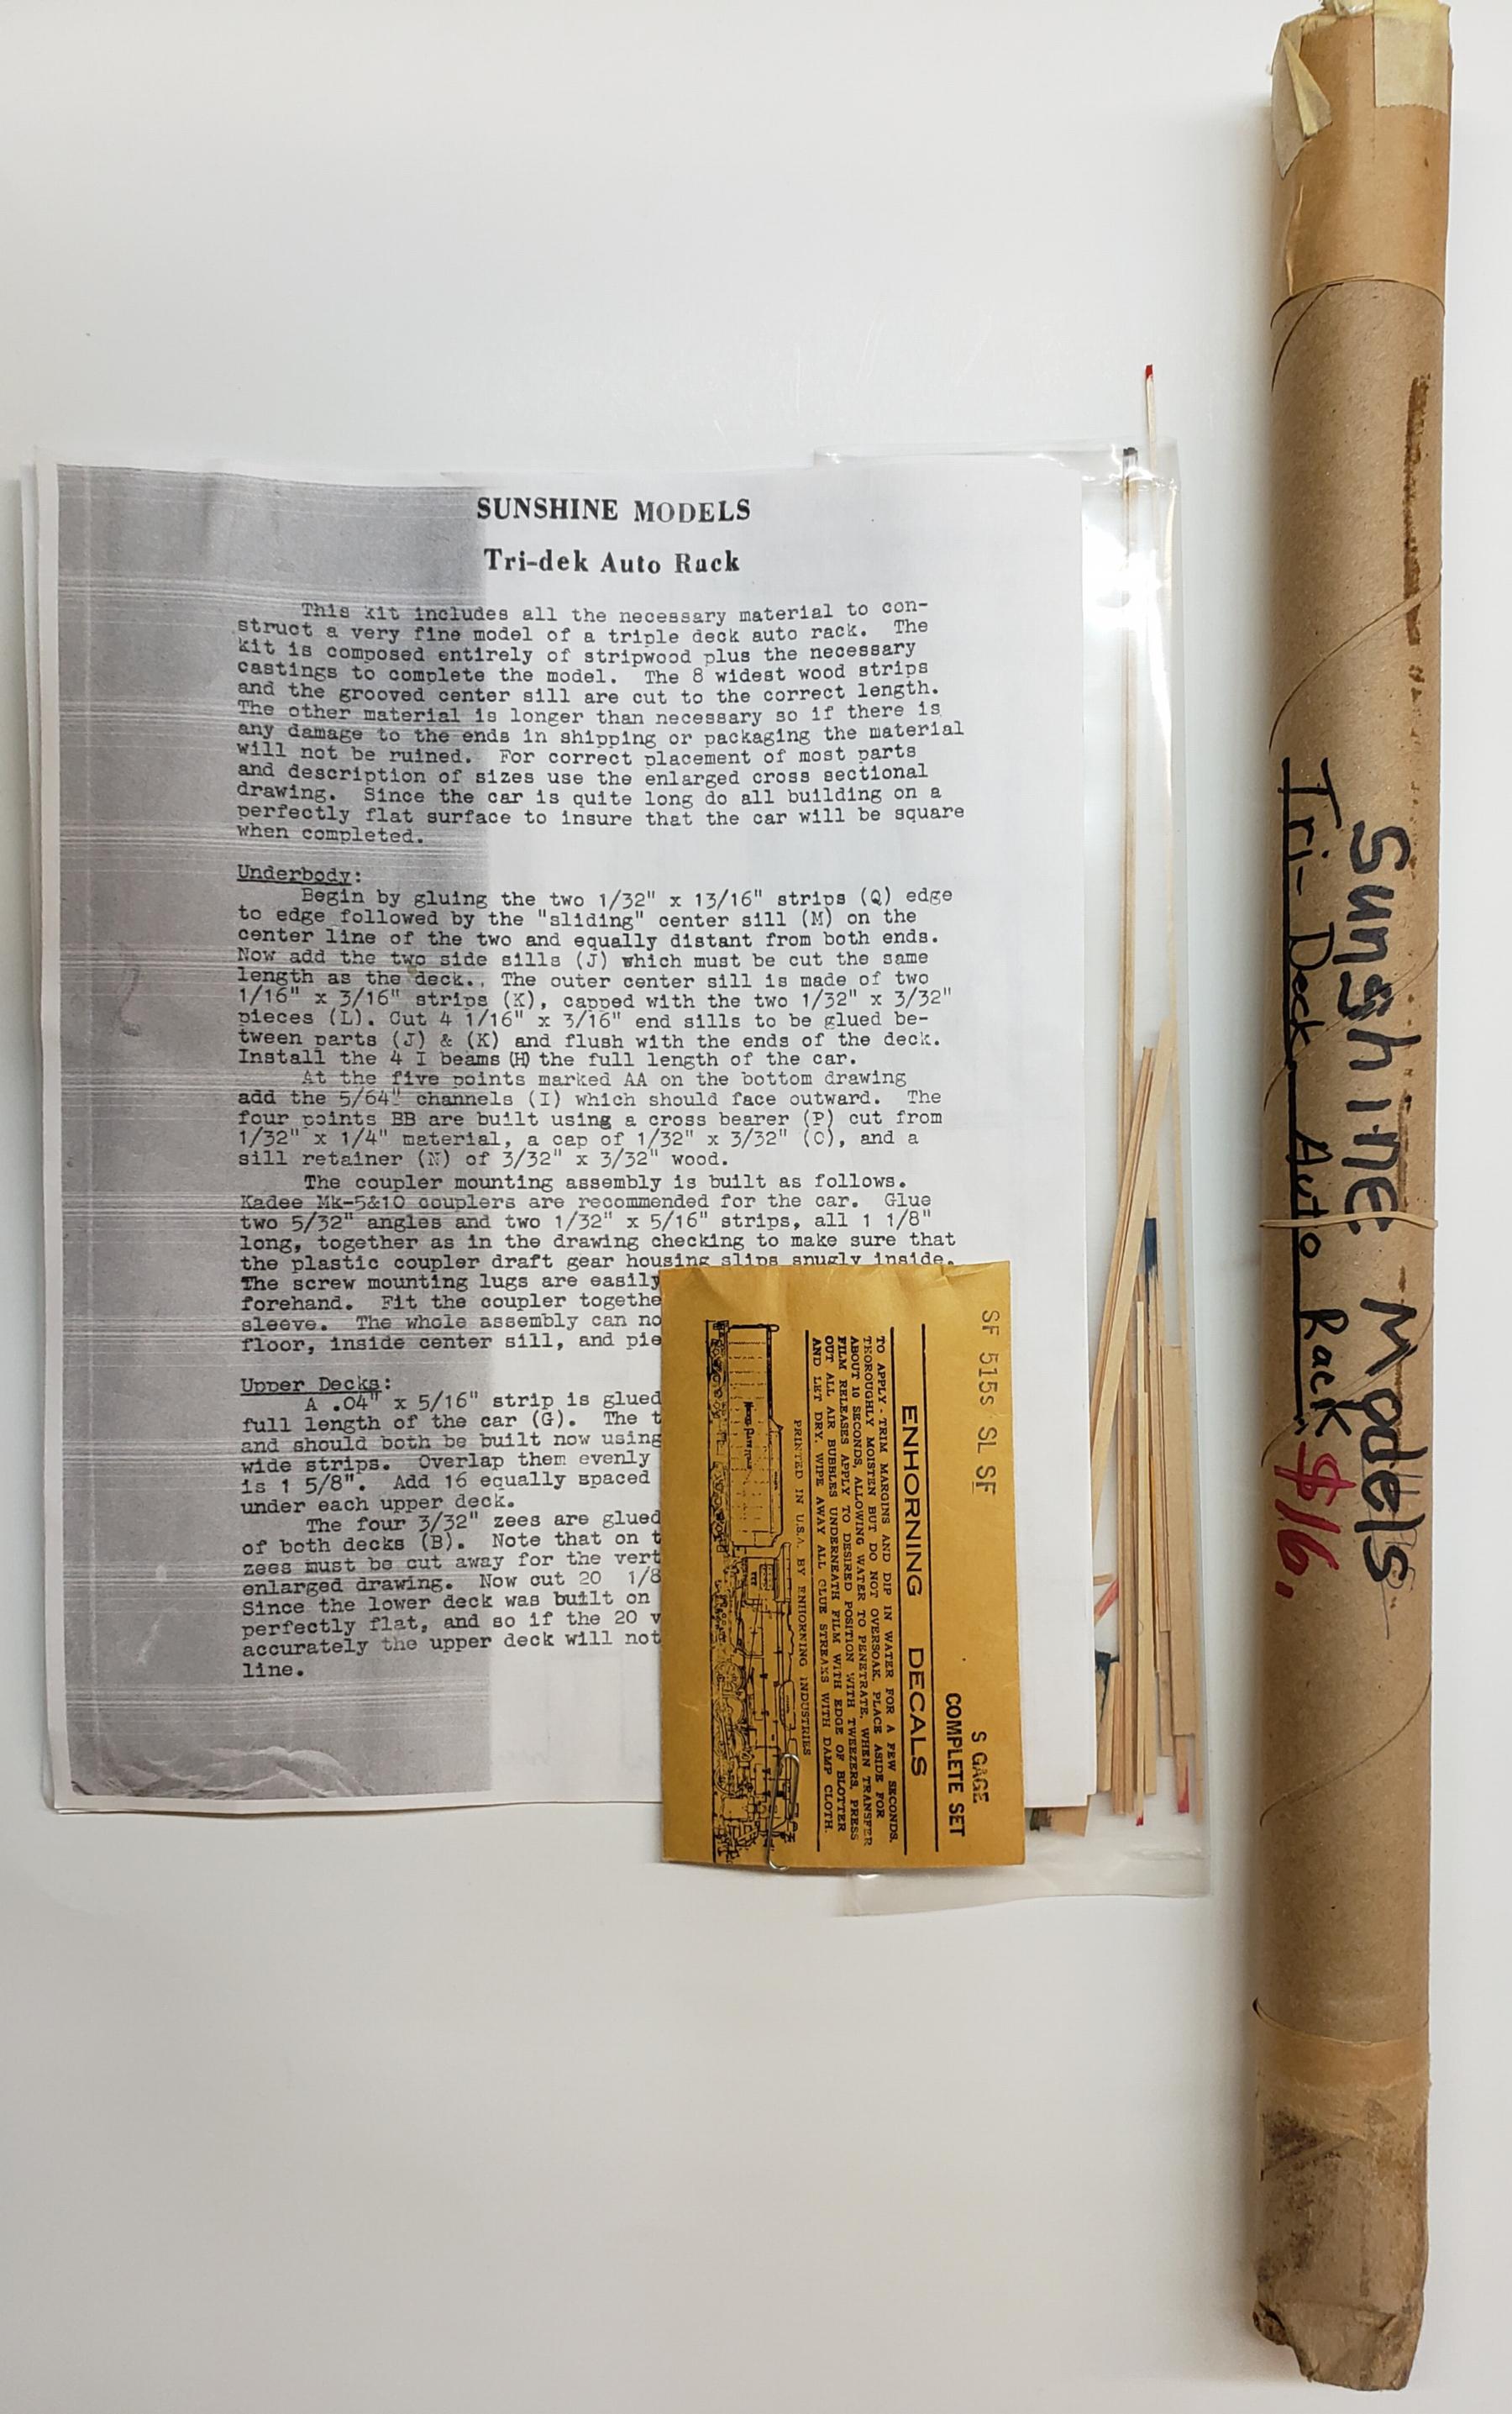 SUNSHINE MODELS
Tri-dek Auto Rack
This kit includes all the necessary material to con-
struct a very fine model of a triple deck auto rack. The
kit is composed entirely of stripwood plus the necessary
castings to complete the model. The 8 widest wood strips
and the grooved center sill are cut to the correct length.
The other material is longer than necessary so if there is
any damage to the ends in shipping or packaging the material
will not be ruined. For correct placement of most parts
and description of sizes use the enlarged cross sectional
drawing. Since the car is quite long do all building on a
perfectly flat surface to insure that the car will be square
when completed.
Underbody:
Begin by gluing the two 1/32" x 13/16" strips (Q) edge
to edge followed by the "sliding" center sill (M) on the
center line of the two and equally distant from both ends.
Now add the two side sills (J) which must be cut the same
length as the deck. The outer center sill is made of two
1/16" x 3/16" strips (K), capped with the two 1/32" x 3/32"
pieces (L). Cut 4 1/16" x 3/16" end sills to be glued be-
tween parts (J) & (K) and flush with the ends of the deck.
Install the 4 I beams (H) the full length of the car.
At the five points marked AA on the bottom drawing
add the 5/64" channels (I) which should face outward. The
four points BB are built using a cross bearer (P) cut from
1/32" x 1/4" material, a cap of 1/32" x 3/32" (O), and a
sill retainer (N) of 3/32" x 3/32" wood.
The coupler mounting assembly is built as follows.
Kadee Mk-5&10 couplers are recommended for the car. Glue
two 5/32" angles and two 1/32" x 5/16" strips, all 1 1/8"
long, together as in the drawing checking to make sure that
the plastic coupler draft gear housing slips snugly inside.
The screw mounting lugs are easily
forehand. Fit the coupler togethe
sleeve. The whole assembly can no
floor, inside center sill, and pie
Upper Decks:
A .04" x 5/16" strip is glued
full length of the car (G). The t
and should both be built now using
wide strips. Overlap them evenly
is 1 5/8". Add 16 equally spaced
under each upper deck.
The four 3/32" zees are glued
of both decks (B). Note that on t
zees must be cut away for the vert
enlarged drawing. Now cut 20 1/8
Since the lower deck was built on
perfectly flat, and so if the 20 v
accurately the upper deck will not
line.
SF 515s SL SF
S GAGE
COMPLETE SET
ENHORNING DECALS
TO APPLY - TRIM MARGINS AND DIP IN WATER FOR A FEW SECONDS.
THOROUGHLY MOISTEN BUT DO NOT OVERSOAK. PLACE ASIDE FOR
ABOUT 10 SECONDS, ALLOWING WATER TO PENETRATE. WHEN TRANSFER
FILM RELEASES APPLY TO DESIRED POSITION WITH TWEEZERS. PRESS
OUT ALL AIR BUBBLES UNDERNEATH FILM WITH EDGE OF BLOTTER
AND LET DRY. WIPE AWAY ALL GLUE STREAKS WITH DAMP CLOTH.
PRINTED IN U.S.A. BY ENHORNING INDUSTRIES
Sunshine Models
Tri-Deck Auto Rack $16.